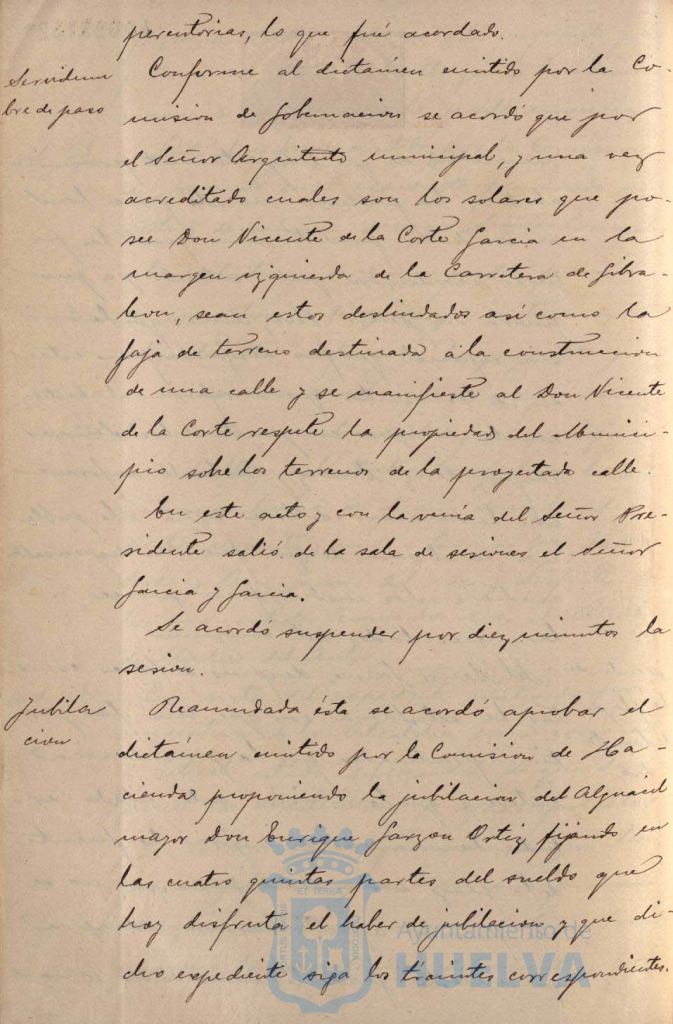 perentorias, lo que fué acordado.
Servidum
bre de paso
Conforme al dictámen emitido por la Co-
mision de Gobernacion se acordó que por
el Señor Arquitecto municipal, y una vez
acreditado cuales son los solares que po-
see Don Vicente de la Corte Garcia en la
margen izquierda de la Carretera de Gibra-
leon, sean estos deslindados asi como la
faja de terreno destinada á la construccion
de una calle y se manifieste al Don Vicente
de la Corte respete la propiedad del Munici-
pio sobre los terrenos de la proyectada calle.
En este acto y con la venia del Señor Pre-
sidente salió de la sala de sesiones el Señor
Garcia y Garcia.
Se acordó suspender por diez minutos la
sesion.
Jubila
cion
Reanudada ésta se acordó aprobar el
dictámen emitido por la Comision de Ha-
cienda proponiendo la jubilacion del Alguacil
mayor Don Enrique Garzon Ortiz fijando en
las cuatro quintas partes del sueldo que
hoy disfruta el haber de jubilacion y que di-
cho expediente siga los trámites correspondientes.
Ayuntamiento de
HUELVA